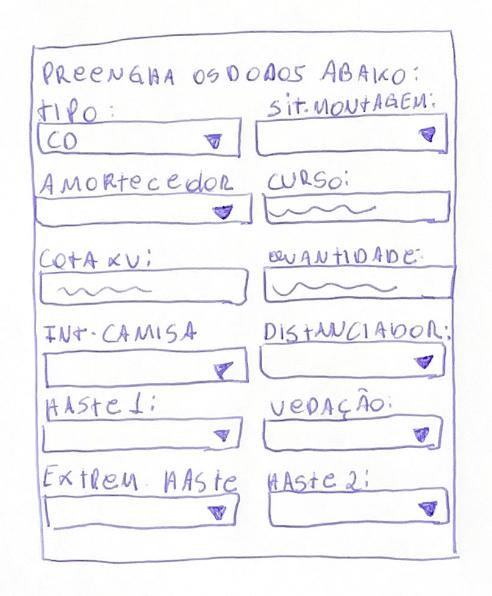 PREENCHA OS DADOS ABAIXO:
TIPO:
SIT. MONTAGEM:
CD
AMORTECEDOR
CURSO:
COTA XV:
QUANTIDADE:
INT. CAMISA
DISTANCIADOR:
HASTE 1:
VEDAÇÃO:
EXTREM. HASTE
HASTE 2: